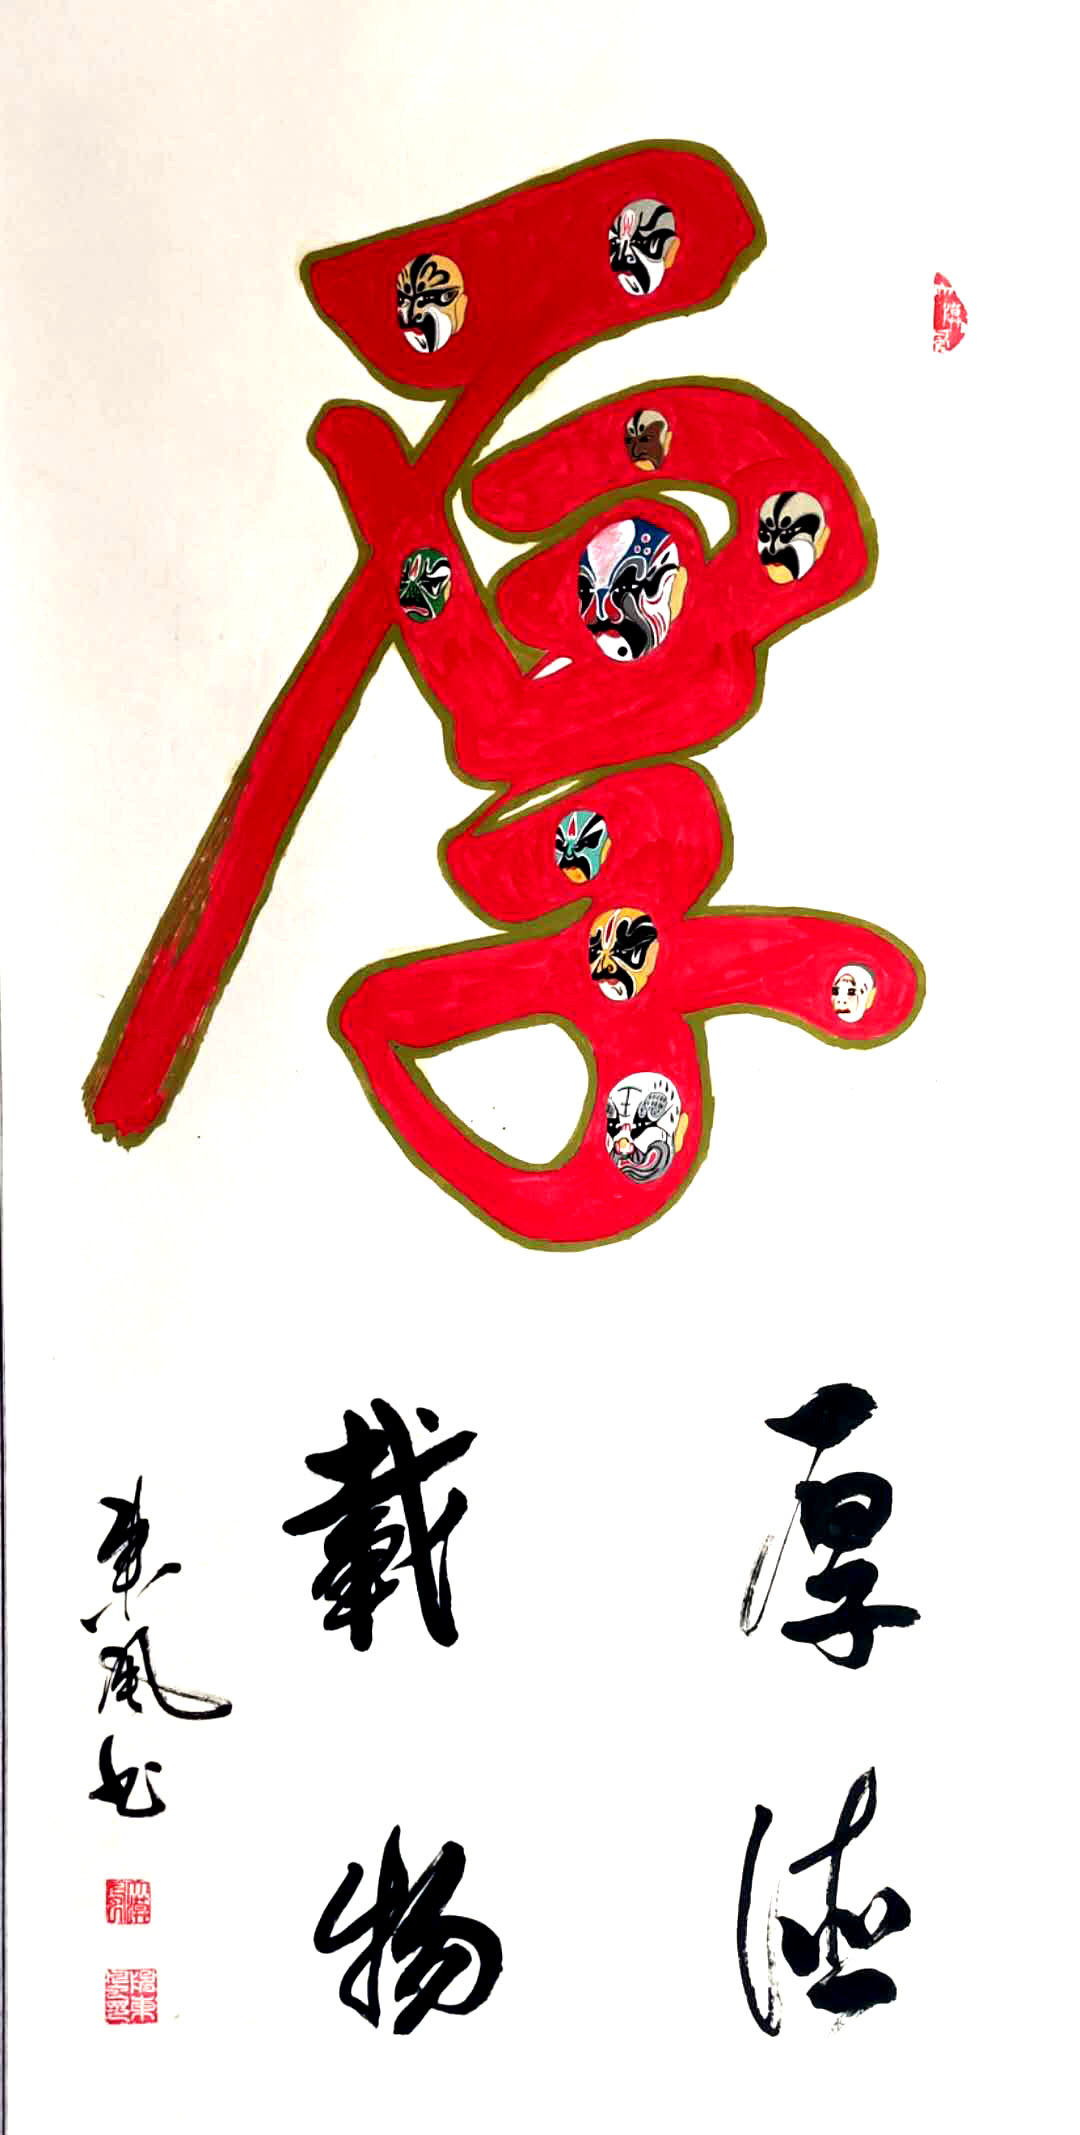 厚
厚德
载物
东风书